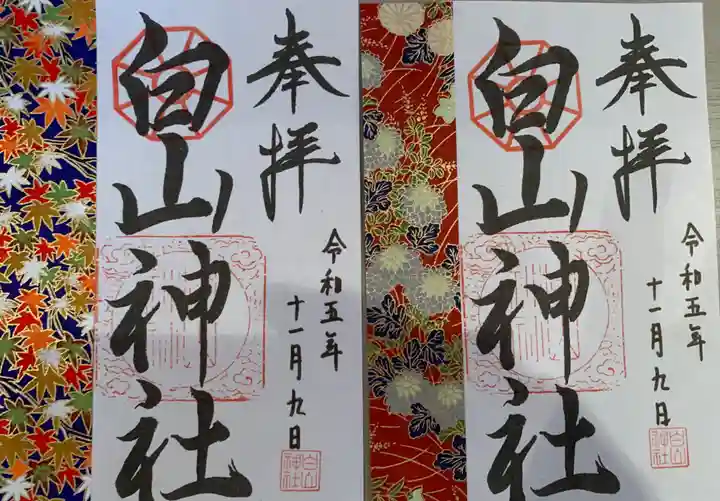 奉拝
白山神社
令和五年
十一月九日
白山
神社
奉拝
白山神社
令和五年
十一月九日
白山
神社